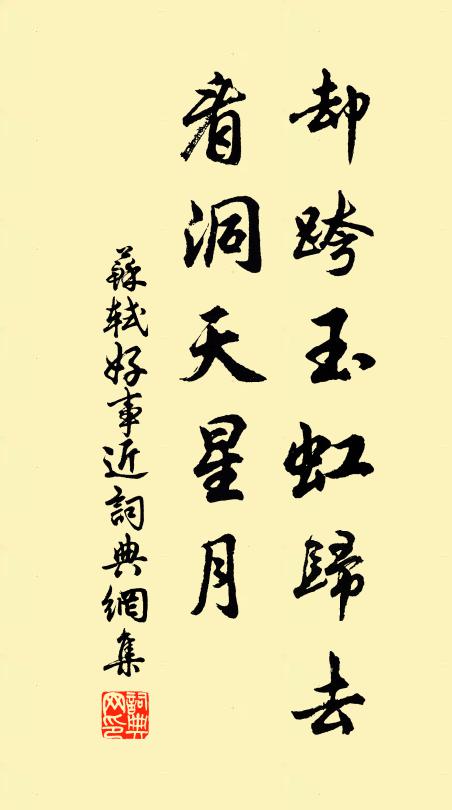 却跨玉虹歸去
看洞天星月
蘇軾好事近詞典網集
詞典網印